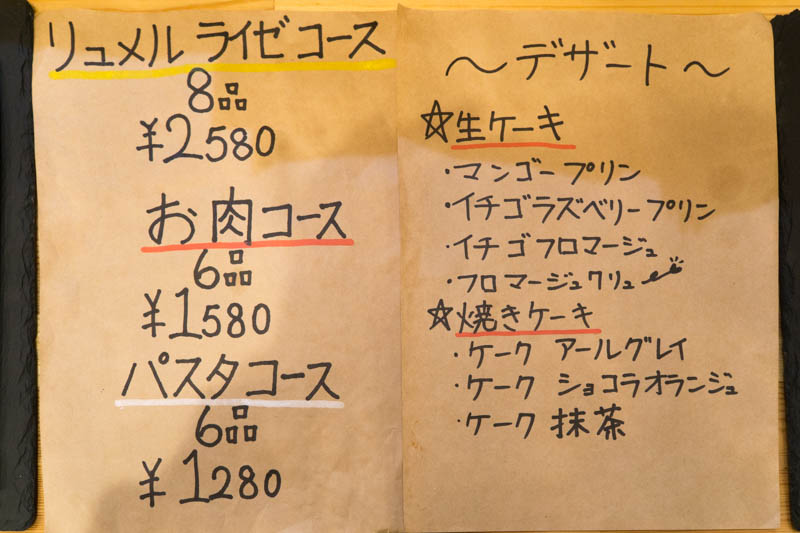 リュメルライゼコース
8品
¥2580
お肉コース
6品
¥1580
パスタコース
6品
¥1280
～デザート～
☆生ケーキ
・マンゴープリン
・イチゴラズベリープリン
・イチゴフロマージュ
・フロマージュクリュ
☆焼きケーキ
・ケーク アールグレイ
・ケーク ショコラオランジュ
・ケーク 抹茶